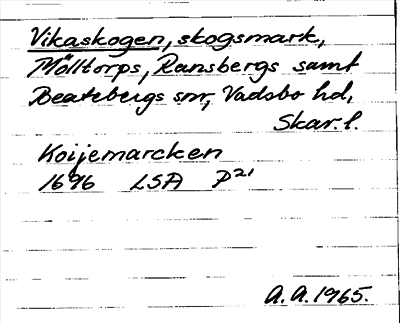 Vikaskogen, skogsmark,
Mölltorps, Ransbergs samt
Beatebergs snr, Vadsbo hd,
Skar. l.
Koijemarcken
1696 LSA P21
A. A. 1965.